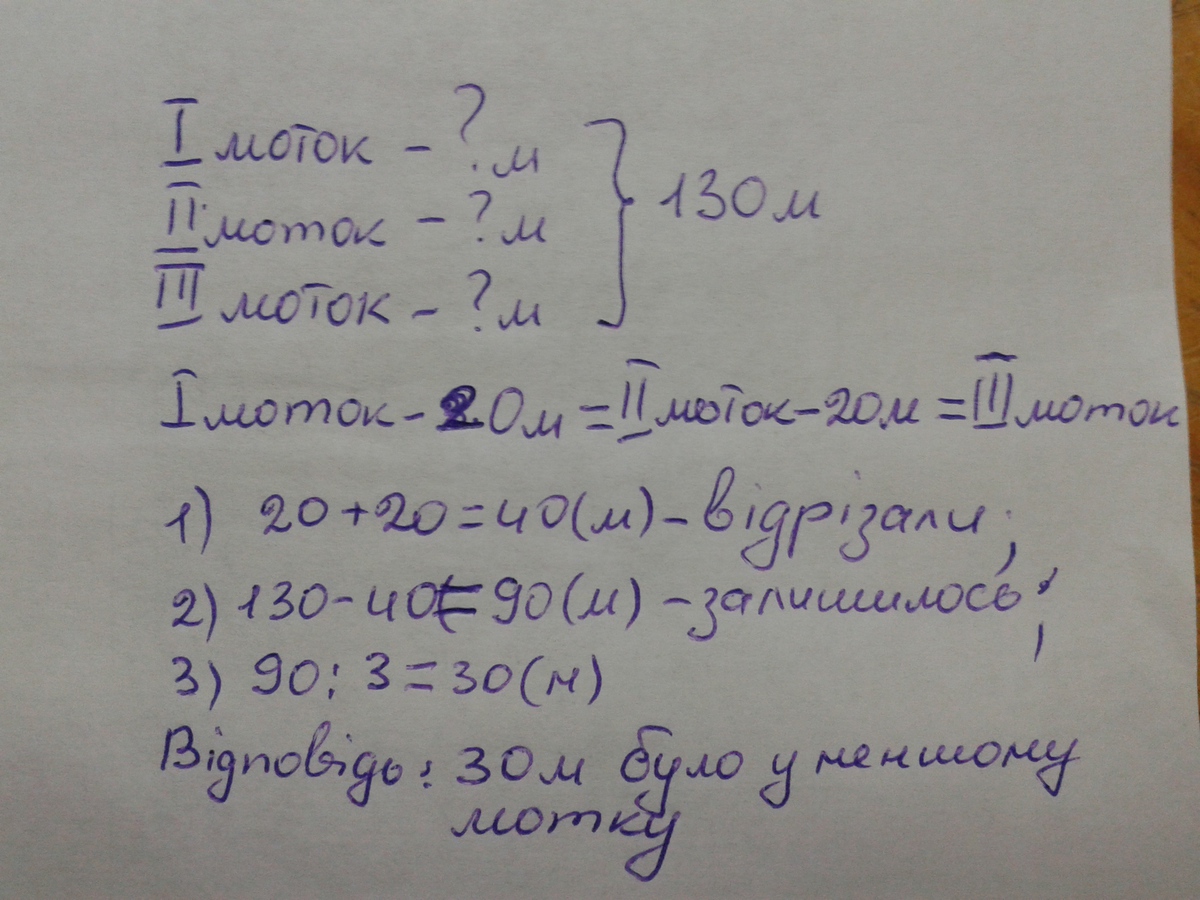 I моток - ? м
II моток - ? м
III моток - ? м
} 130 м
I моток - 20 м = II моток - 20 м = III моток
1) 20 + 20 = 40 (м) - відрізали;
2) 130 - 40 = 90 (м) - залишилось;
3) 90 : 3 = 30 (м)
Відповідь: 30 м було у меншому
мотку